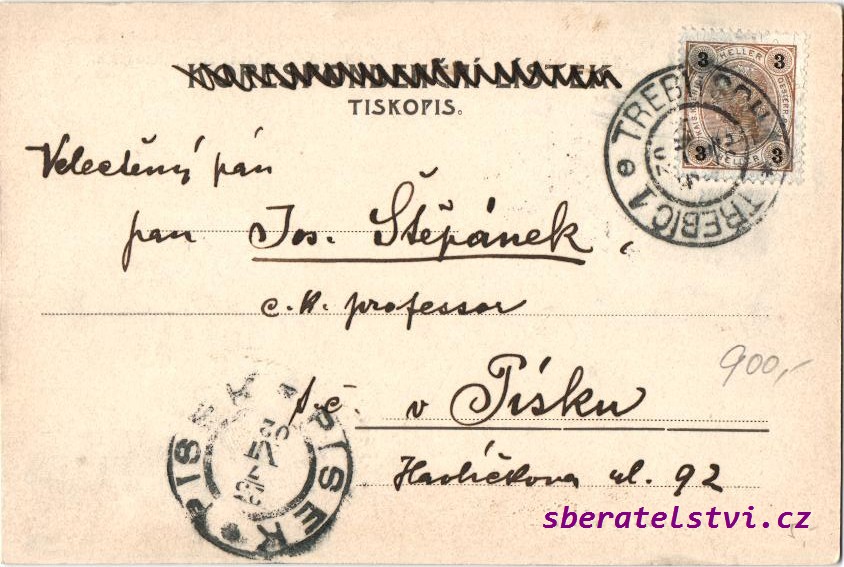 KORESPONDENČNÍ LÍSTEK
TISKOPIS.
3 HELLER 3
3 HELLER 3
TREBITSCH
TŘEBÍČ 1
Velectěný pán
pan Jos. Štěpánek,
c. k. professor
v Písku
Havlíčkova ul. 92
900,-
PISEK PÍSEK
sberatelstvi.cz